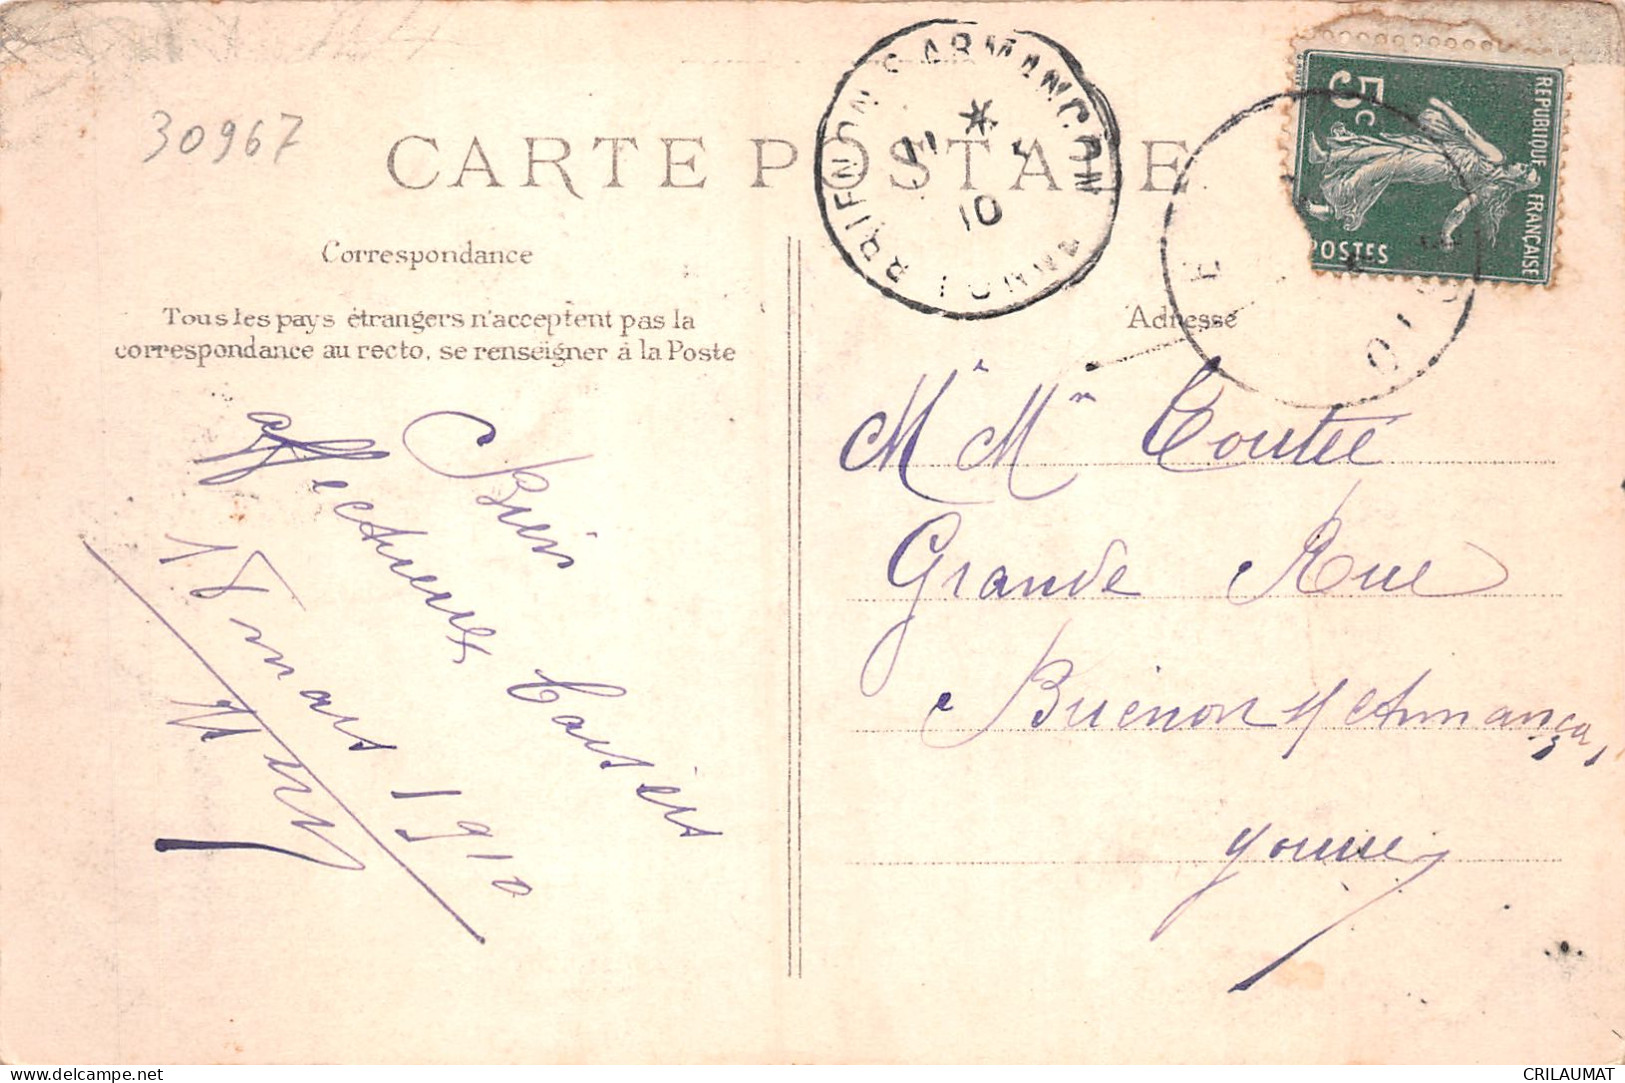 30967
CARTE POSTALE
BRIENON S. ARMANÇON
10
YONNE
5c
REPUBLIQUE FRANÇAISE
POSTES
E
10
Correspondance
Adresse
Tous les pays étrangers n'acceptent pas la
correspondance au recto, se renseigner à la Poste
Bien
affectueux baisers
18 mars 1910
Mr Mm
Grande Rue
Brienon s/ Armançon
Yonne
CRILAUMAT